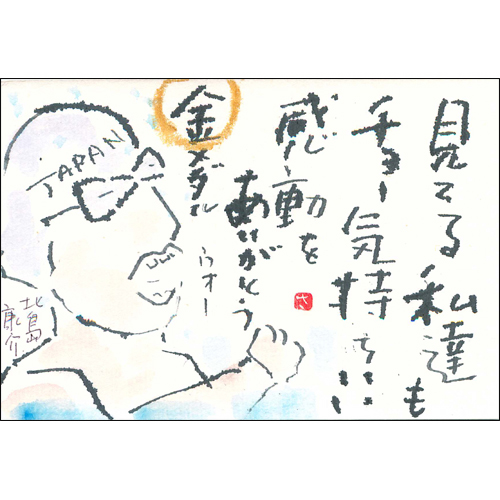 見てる私達も
チョー気持ちいい
感動を
ありがとう
金メダル
ウオー
JAPAN
北島
康介